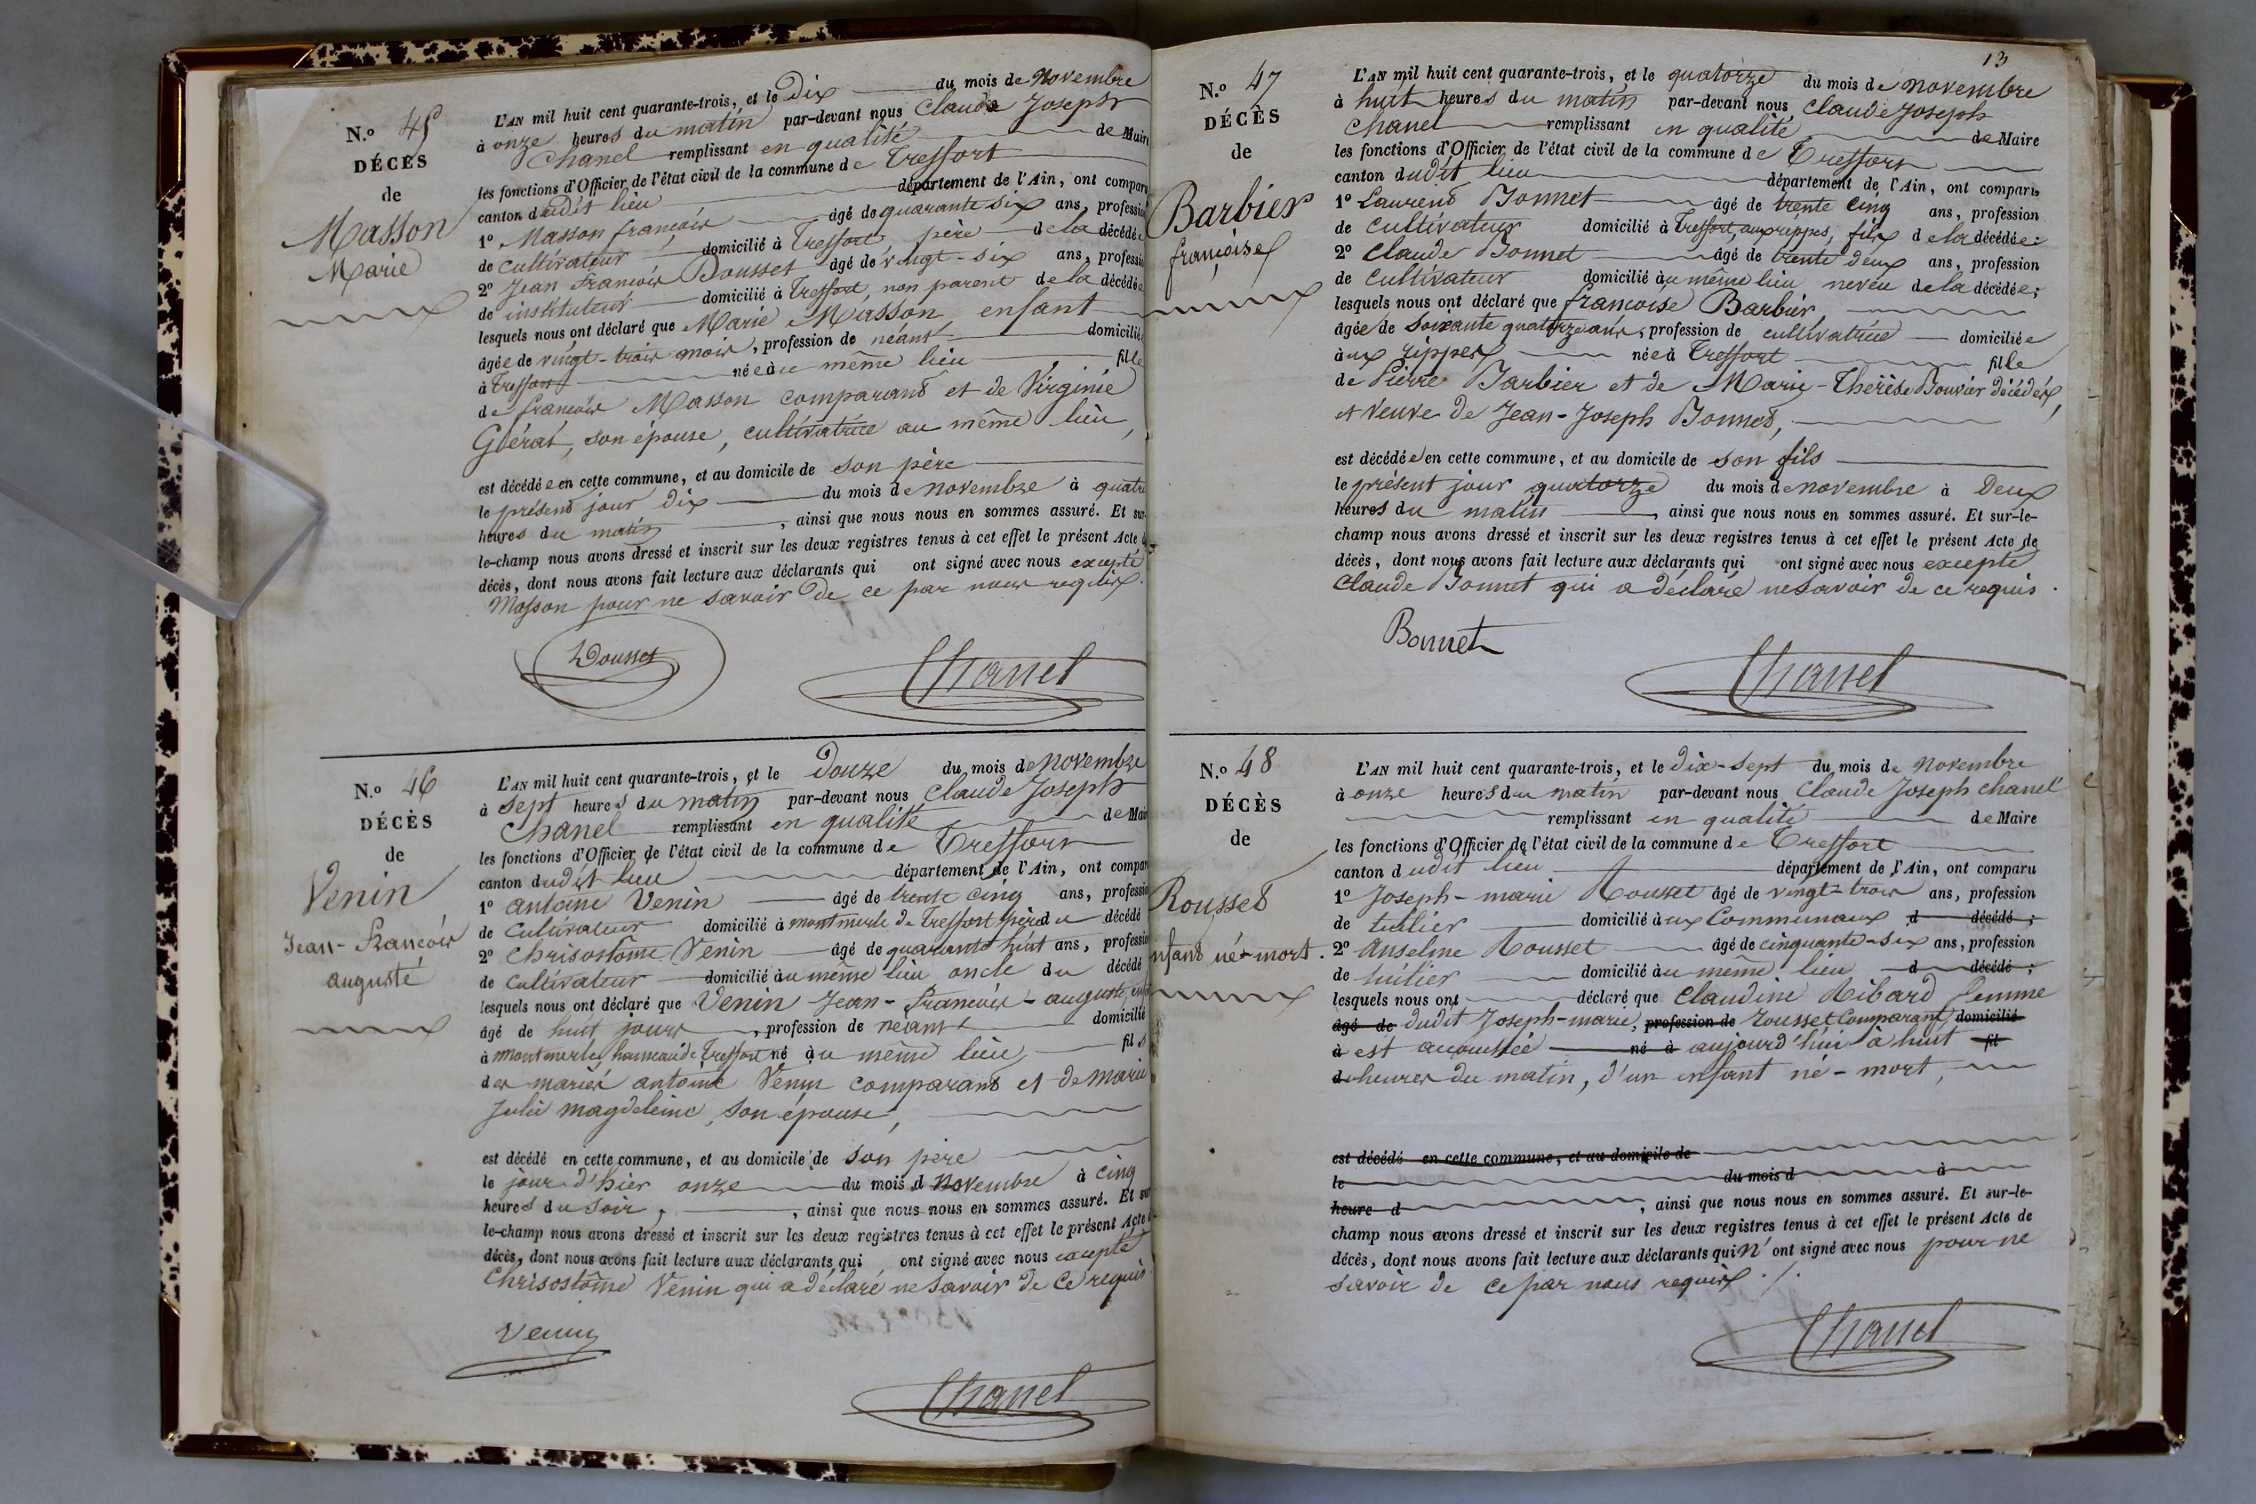 N.o 45
DÉCÈS
de
Masson
Marie
L'AN mil huit cent quarante-trois, et le Dix du mois de Novembre
à onze heures du matin par-devant nous Claude Joseph
Chanel remplissant en qualité de Maire
les fonctions d'Officier de l'état civil de la commune de Treffort
canton dudit lieu département de l'Ain, ont comparu
1o Masson françois âgé de quarante six ans, profession
de cultivateur domicilié à Treffort, père de la décédée
2o Jean françois Dousset âgé de vingt-six ans, profession
de instituteur domicilié à Treffort, non parent de la décédée
lesquels nous ont déclaré que Marie Masson, enfant
âgée de vingt-trois mois, profession de néant domiciliée
à Treffort née au même lieu fille
de françois Masson comparant et de Virginie
son épouse, cultivatrice au même lieu,
est décédée en cette commune, et au domicile de son père
le présent jour dix du mois de novembre à quatre
heures du matin, ainsi que nous nous en sommes assuré. Et sur-
le-champ nous avons dressé et inscrit sur les deux registres tenus à cet effet le présent Acte de
décès, dont nous avons fait lecture aux déclarants qui ont signé avec nous excepté
Masson pour ne savoir de ce par nous requis.
Dousset Chanel
N.o 46
DÉCÈS
de
Venin
Jean-françois
auguste
L'AN mil huit cent quarante-trois, et le Douze du mois de Novembre
à sept heures du matin par-devant nous Claude Joseph
Chanel remplissant en qualité de Maire
les fonctions d'Officier de l'état civil de la commune de Treffort
canton dudit lieu département de l'Ain, ont comparu
1o antoine Venin âgé de trente cinq ans, profession
de Cultivateur domicilié à montmerle de Treffort père du décédé
2o Chrisostôme Venin âgé de quarante huit ans, profession
de cultivateur domicilié au même lieu oncle du décédé
lesquels nous ont déclaré que Venin Jean-françois-auguste, enfant
âgé de huit jours, profession de néant domicilié
à montmerle, hameau de Treffort né au même lieu, fils
des mariés antoine Venin comparant et de marie
Julie magdeleine, son épouse,
est décédé en cette commune, et au domicile de son père
le jour d'hier onze du mois d Novembre à cinq
heures du soir, ainsi que nous nous en sommes assuré. Et sur
le-champ nous avons dressé et inscrit sur les deux registres tenus à cet effet le présent Acte de
décès, dont nous avons fait lecture aux déclarants qui ont signé avec nous excepté
Chrisostôme Venin qui a déclaré ne savoir de ce requis
Venin
Chanel
13
N.o 47
DÉCÈS
de
Barbier
françoise
L'AN mil huit cent quarante-trois, et le quatorze du mois de novembre
à huit heures du matin par-devant nous Claude Joseph
Chanel remplissant en qualité de Maire
les fonctions d'Officier de l'état civil de la commune de Treffort
canton dudit lieu département de l'Ain, ont comparu
1o Laurent Bonnet âgé de trente cinq ans, profession
de cultivateur domicilié à Treffort, aux rippes, fils de la décédée;
2o Claude Bonnet âgé de trente deux ans, profession
de cultivateur domicilié au même lieu neveu de la décédée;
lesquels nous ont déclaré que françoise Barbier
âgée de soixante quatorze ans, profession de cultivatrice domiciliée
aux rippes née à Treffort fille
de Pierre Barbier et de Marie-Thérèse Bouvier décédés,
et veuve de Jean-Joseph Bonnet,
est décédée en cette commune, et au domicile de son fils
le présent jour quatorze du mois de novembre à Deux
heures du matin, ainsi que nous nous en sommes assuré. Et sur-le-
champ nous avons dressé et inscrit sur les deux registres tenus à cet effet le présent Acte de
décès, dont nous avons fait lecture aux déclarants qui ont signé avec nous excepté
Claude Bonnet qui a déclaré ne savoir de ce requis.
Bonnet
Chanel
N.o 48
DÉCÈS
de
Rousset
enfant né-mort.
L'AN mil huit cent quarante-trois, et le dix-sept du mois de Novembre
à onze heures du matin par-devant nous Claude Joseph Chanel
remplissant en qualité de Maire
les fonctions d'Officier de l'état civil de la commune de Treffort
canton dudit lieu département de l'Ain, ont comparu
1o Joseph-marie Rousset âgé de vingt-trois ans, profession
de tuilier domicilié aux Communaux d décédé;
2o Anselme Rousset âgé de cinquante-six ans, profession
de tuilier domicilié au même lieu d décédé;
lesquels nous ont déclaré que Claudine Ribard femme
âgé de dudit Joseph-marie, profession de rousset Comparant, domicilié
à est accouchée né à aujourd'hui à huit fil
d heures du matin, d'un enfant né-mort,
est décédé en cette commune, et au domicile de
le du mois d à
heure d, ainsi que nous nous en sommes assuré. Et sur-le-
champ nous avons dressé et inscrit sur les deux registres tenus à cet effet le présent Acte de
décès, dont nous avons fait lecture aux déclarants qui n'ont signé avec nous pour ne
savoir de ce par nous requis./.
Chanel